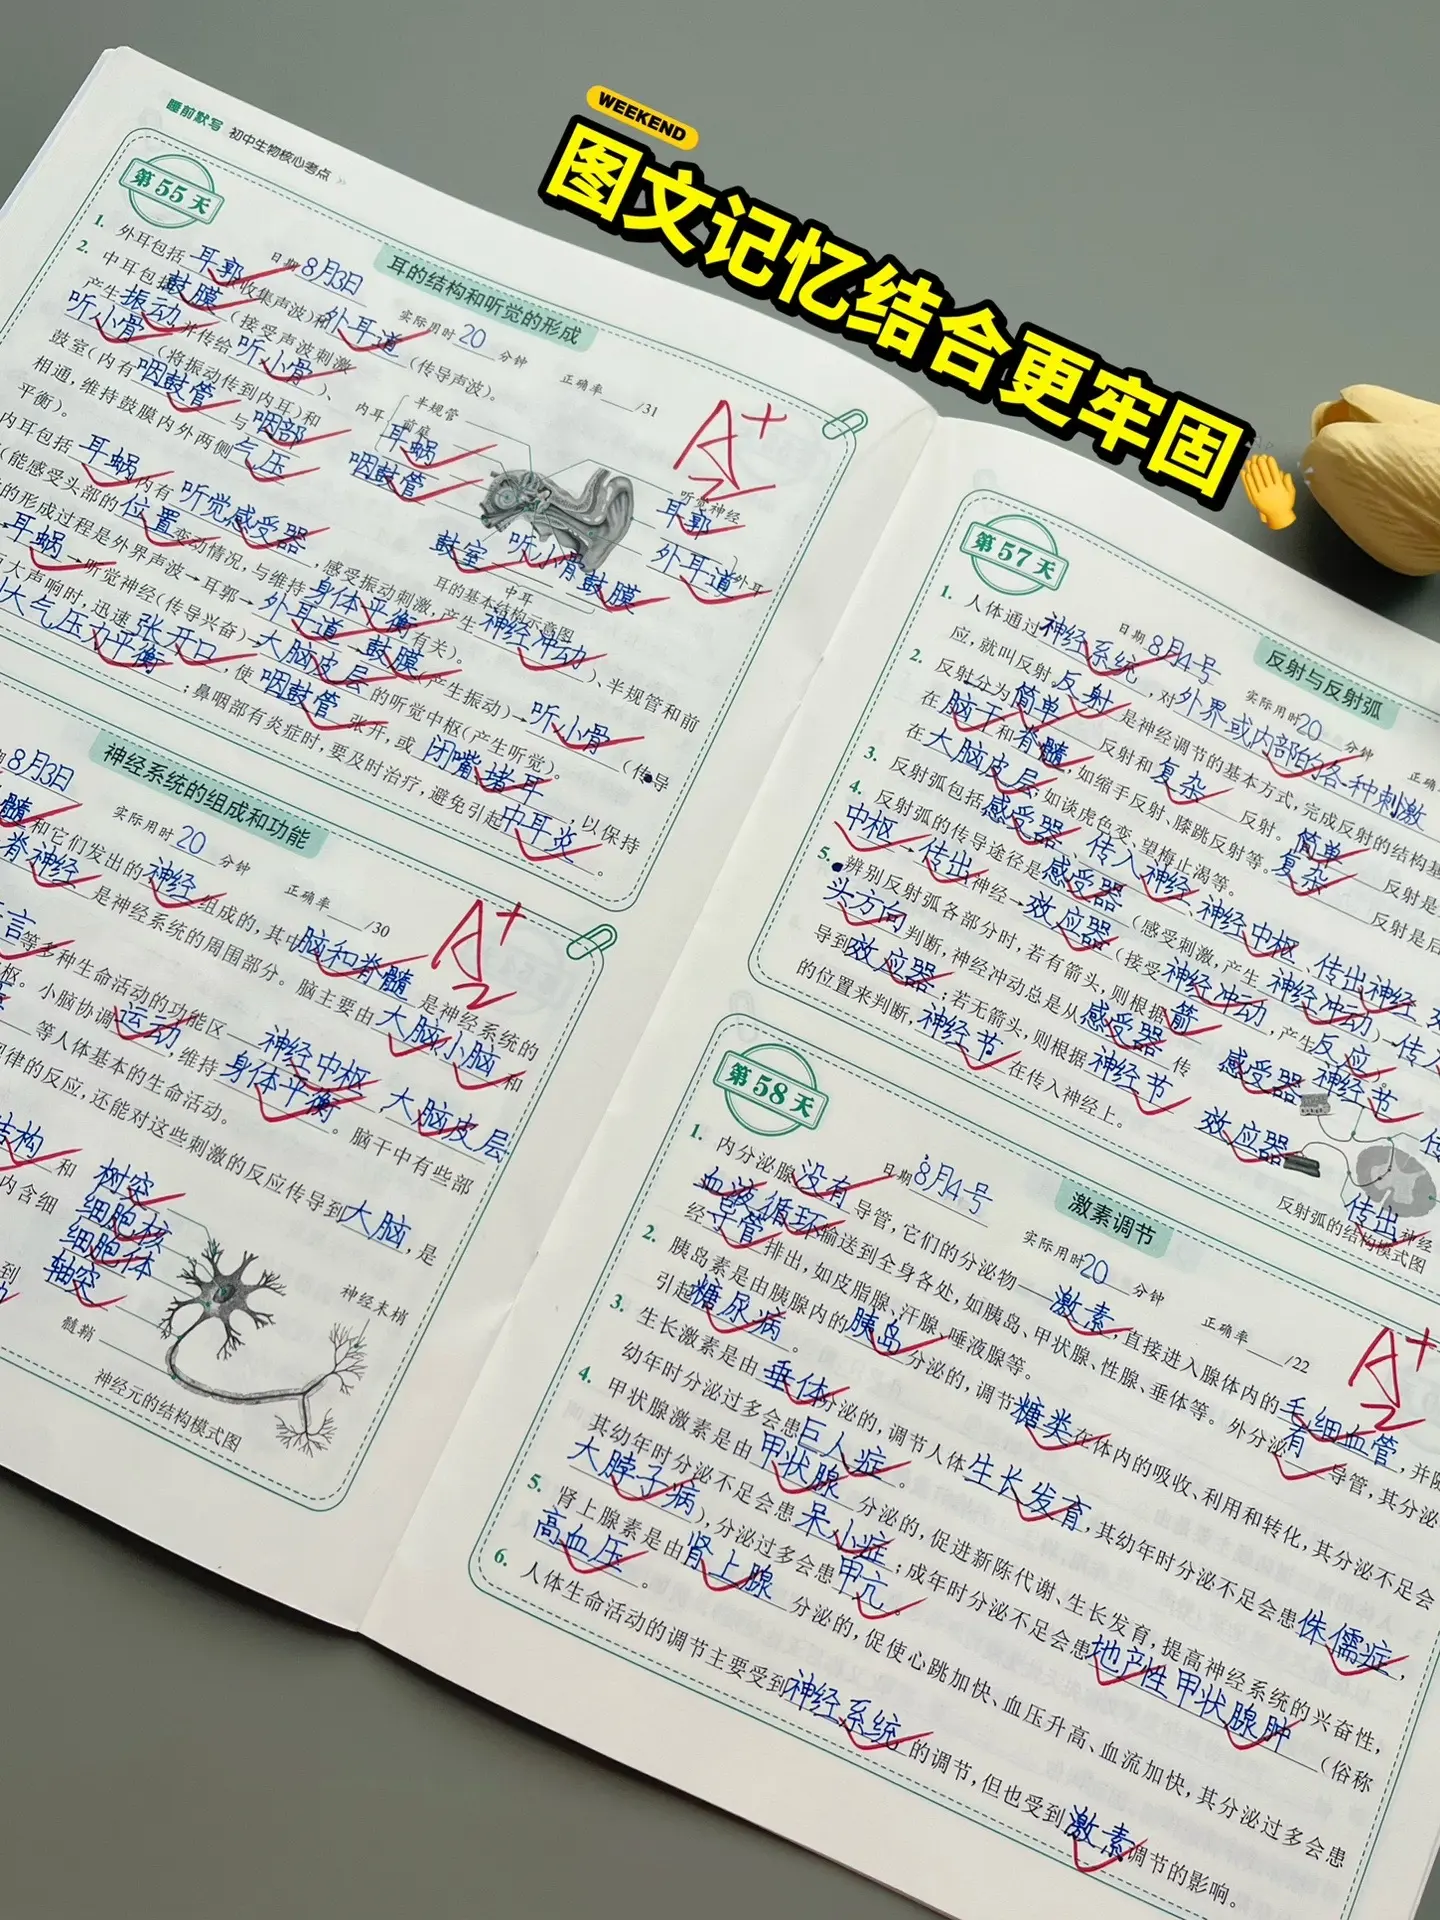 WEEKEND
图文记忆结合更牢固
睡前默写 初中生物核心考点
第55天
耳的结构和听觉的形成
日期 8月3日 实际用时 20 分钟 正确率 /31
A+
1. 外耳包括 耳郭 (收集声波)和 外耳道 (传导声波)。
2. 中耳包括 鼓膜 (接受声波刺激
产生 振动 并传给 听小骨 )、
听小骨 (将振动传到内耳)和
鼓室(内有 咽鼓管 与 咽部
相通,维持鼓膜内外两侧 气压
平衡)。
内耳
半规管
前庭
耳蜗
咽鼓管
听觉神经
耳郭
外耳道
外耳
鼓室 听小骨 鼓膜
中耳
耳的基本结构示意图
内耳包括 耳蜗 (内有 听觉感受器 ,感受振动刺激,产生 神经冲动 )、半规管和前
(能感受头部的 位置 变动情况,与维持 身体平衡 有关)。
的形成过程是外界声波→耳郭→ 外耳道 → 鼓膜 (产生振动)→ 听小骨 (传导
耳蜗 →听觉神经(传导兴奋)→ 大脑皮层 的听觉中枢(产生听觉)。
大声响时,迅速 张开口 ,使 咽鼓管 张开,或 闭嘴堵耳 ,以保持
大气压力平衡 ;鼻咽部有炎症时,要及时治疗,避免引起 中耳炎 。
神经系统的组成和功能
8月3日 实际用时 20 分钟 正确率 /30
A+
髓 和它们发出的 神经 组成的,其中 脑和脊髓 是神经系统的
脊神经 是神经系统的周围部分。脑主要由 大脑、小脑 和
言 等多种生命活动的功能区—— 神经中枢 , 大脑皮层
枢。小脑协调 运动 ,维持 身体平衡 。脑干中有些部
等人体基本的生命活动。
规律的反应,还能对这些刺激的反应传导到 大脑 ,是
结构 和
内含细
到
树突
细胞核
细胞体
轴突
髓鞘
神经末梢
神经元的结构模式图
第57天
反射与反射弧
日期 8月4号 实际用时 20 分钟 正确
1. 人体通过 神经系统 ,对 外界或内部的各种刺激
应,就叫反射。 反射 是神经调节的基本方式,完成反射的结构基
2. 反射分为 简单 反射和 复杂 反射。 简单 反射是
在 脑干 和 脊髓 ,如缩手反射、膝跳反射等。 复杂 反射是后
在 大脑皮层 ;如谈虎色变、望梅止渴等。
3. 反射弧包括 感受器 、 传入神经 、 神经中枢 、 传出神经
4. 反射弧的传导途径是 感受器 (感受刺激,产生 神经冲动 )→ 传入
中枢 → 传出 神经→ 效应器 (接受 神经冲动 ,产生 反应 。
5. 辨别反射弧各部分时,若有箭头,则根据 箭
头方向 判断,神经冲动总是从 感受器 传
导到 效应器 ;若无箭头,则根据 神经节
的位置来判断, 神经节 在传入神经上。
感受器 神经节
效应器
传
传出 神经
反射弧的结构模式图
第58天
激素调节
日期 8月4号 实际用时 20 分钟 正确率 /22
A+
1. 内分泌腺 没有 导管,它们的分泌物—— 激素 ,直接进入腺体内的 毛细血管 ,并随
血液循环 输送到全身各处,如胰岛、甲状腺、性腺、垂体等。外分泌 有 导管,其分泌
经 导管 排出,如皮脂腺、汗腺、唾液腺等。
2. 胰岛素是由胰腺内的 胰岛 分泌的,调节 糖类 在体内的吸收、利用和转化,其分泌不足会
引起 糖尿病 。
3. 生长激素是由 垂体 分泌的,调节人体 生长发育 ,其幼年时分泌不足会患 侏儒症 ,
幼年时分泌过多会患 巨人症 。
4. 甲状腺激素是由 甲状腺 分泌的,促进新陈代谢、生长发育,提高神经系统的兴奋性,
其幼年时分泌不足会患 呆小症 ;成年时分泌不足会患 地产性甲状腺肿 (俗称
大脖子病 ),分泌过多会患 甲亢 。
5. 肾上腺素是由 肾上腺 分泌的,促使心跳加快、血压升高、血流加快,其分泌过多会患
高血压 。
6. 人体生命活动的调节主要受到 神经系统 的调节,但也受到 激素 调节的影响。